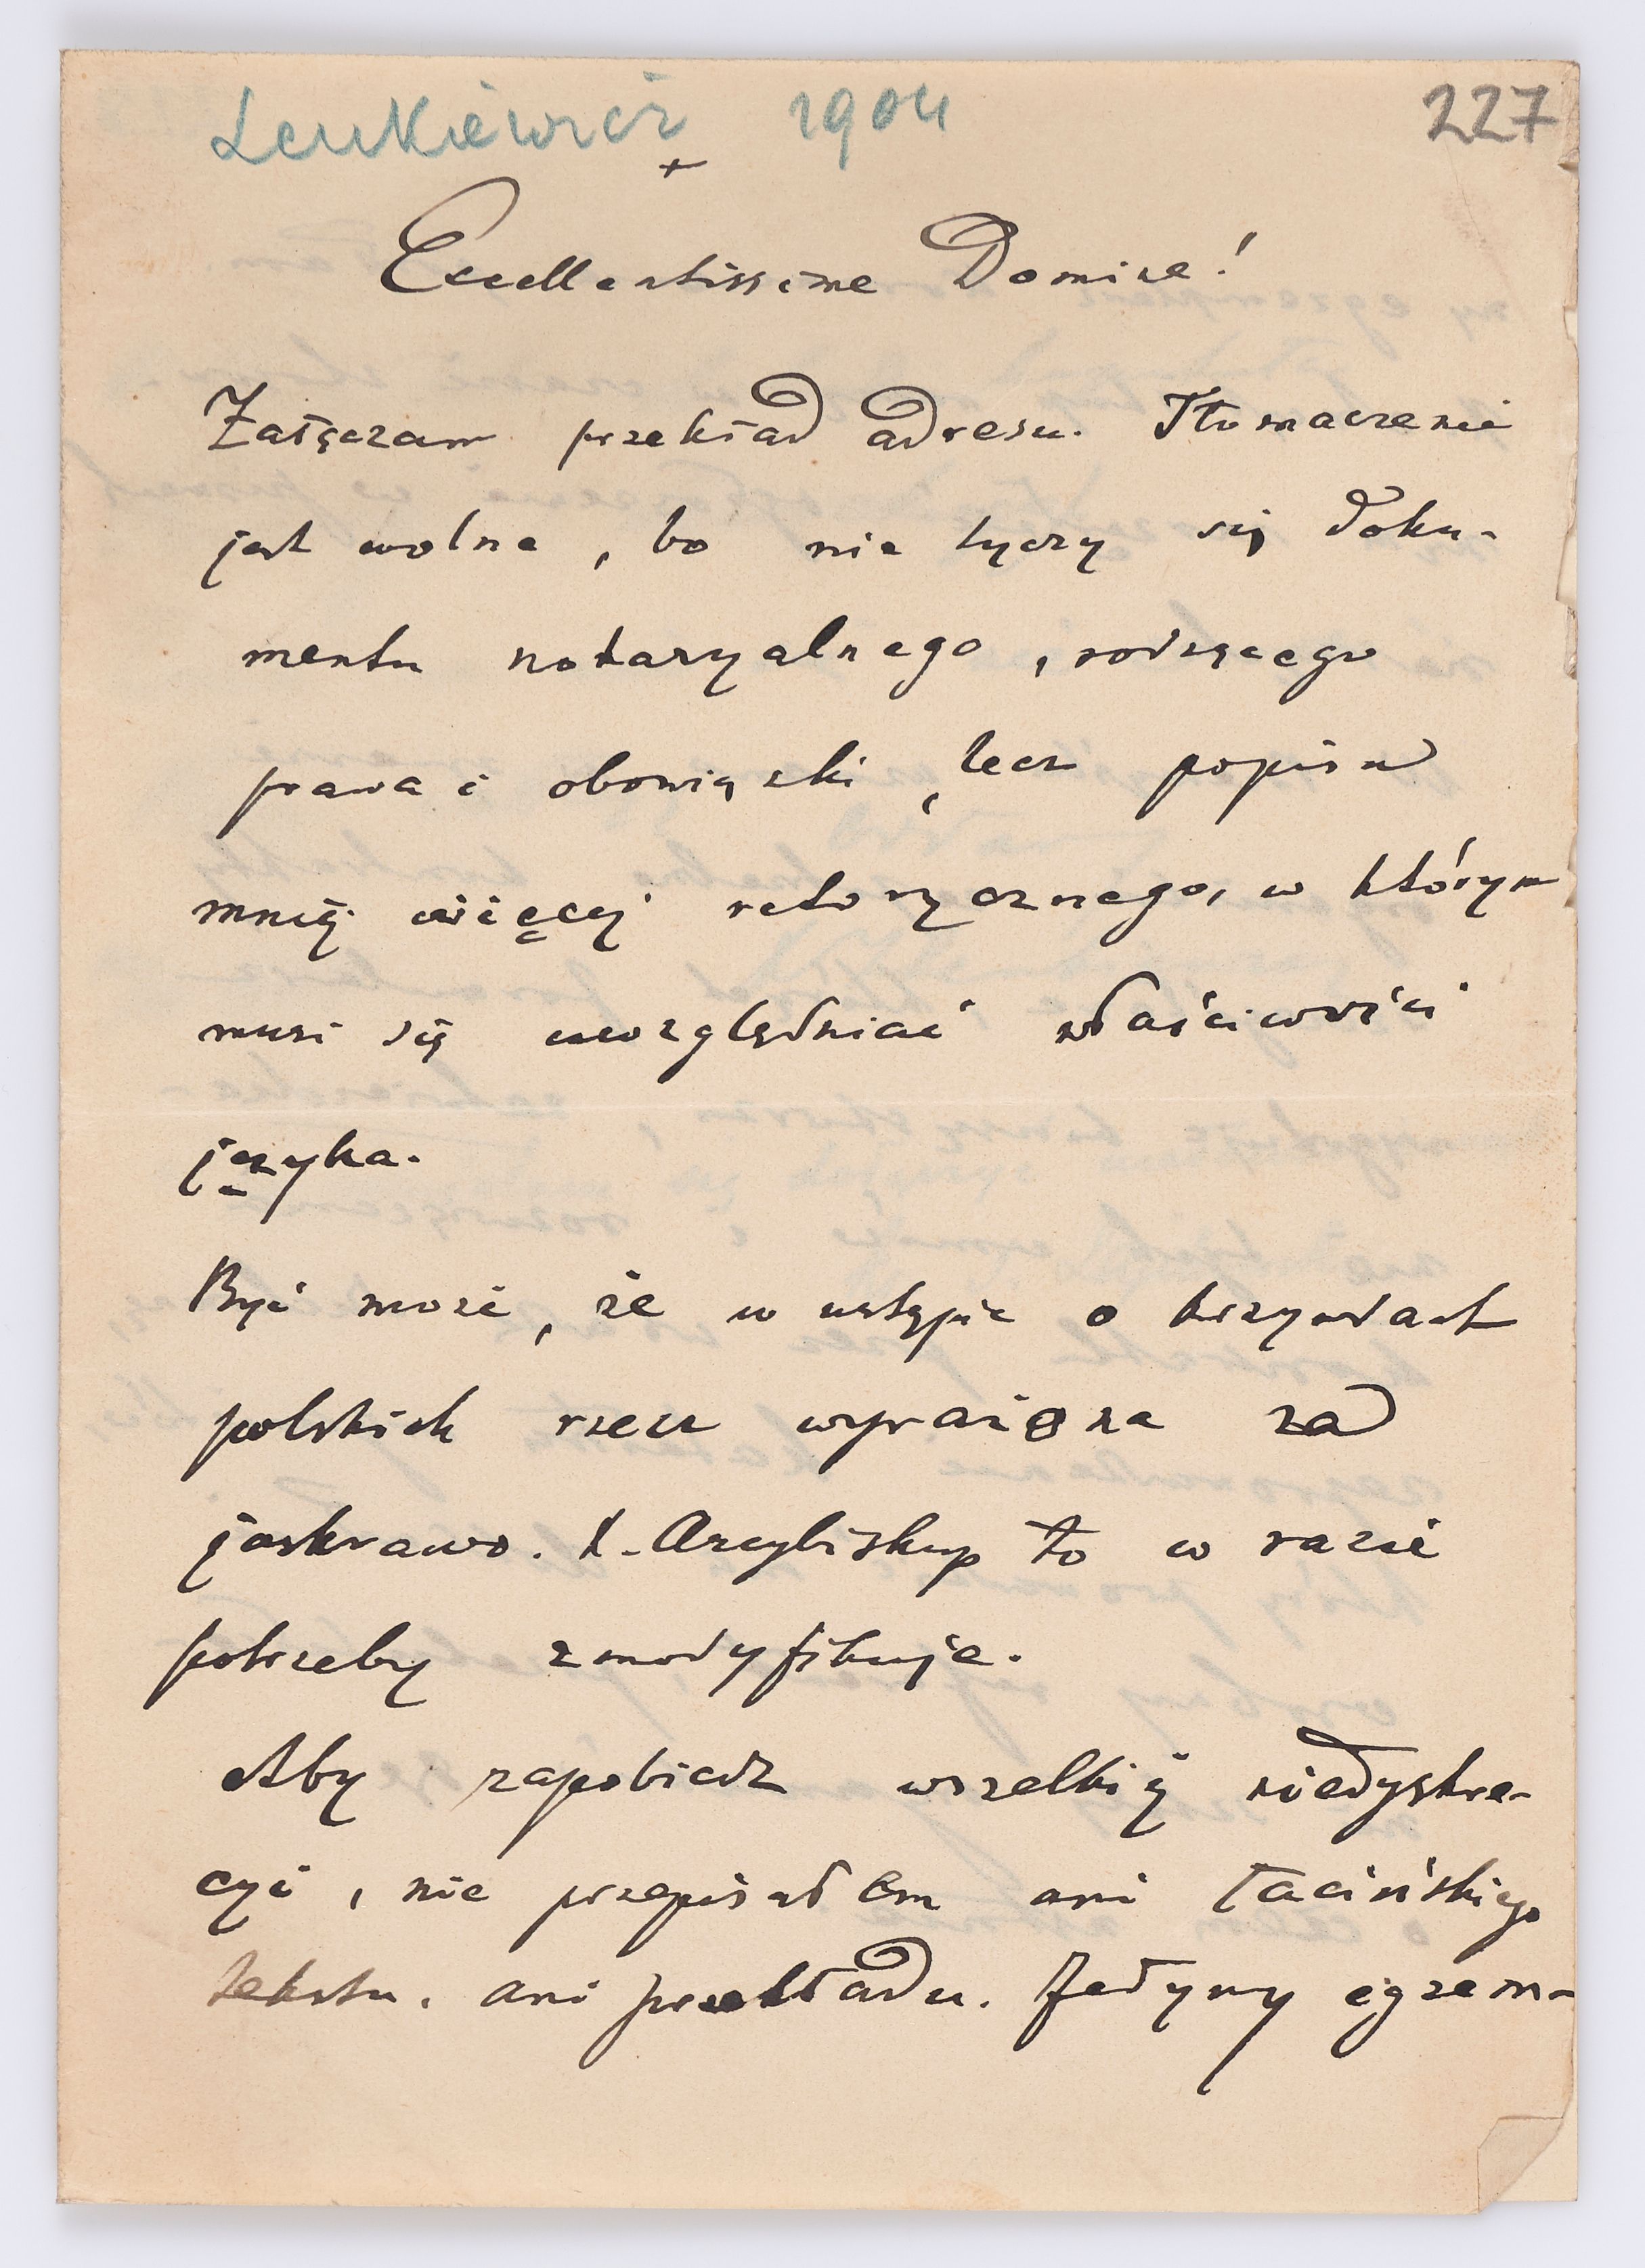 Lenkiewicz 1904
227
+
Excellentissime Domine!
Załączam przekład adresu. Tłomaczenie
jest wolne, bo nie tyczy się doku-
mentu notaryalnego, rodzącego
prawa i obowiązki, lecz popisu
mniej więcej retorycznego, w którym
musi się uwzględniać właściwości
języka.
Być może, że w ustępie o krzywdach
polskich rzecz wyrażona za
jaskrawo. X. Arcybiskup to w razie
potrzeby zmodyfikuje.
Aby zapobiedz wszelkiej niedyskre-
cyi, nie przepisałem ani łacińskiego
tekstu, ani przekładu. Jedyny egzem-